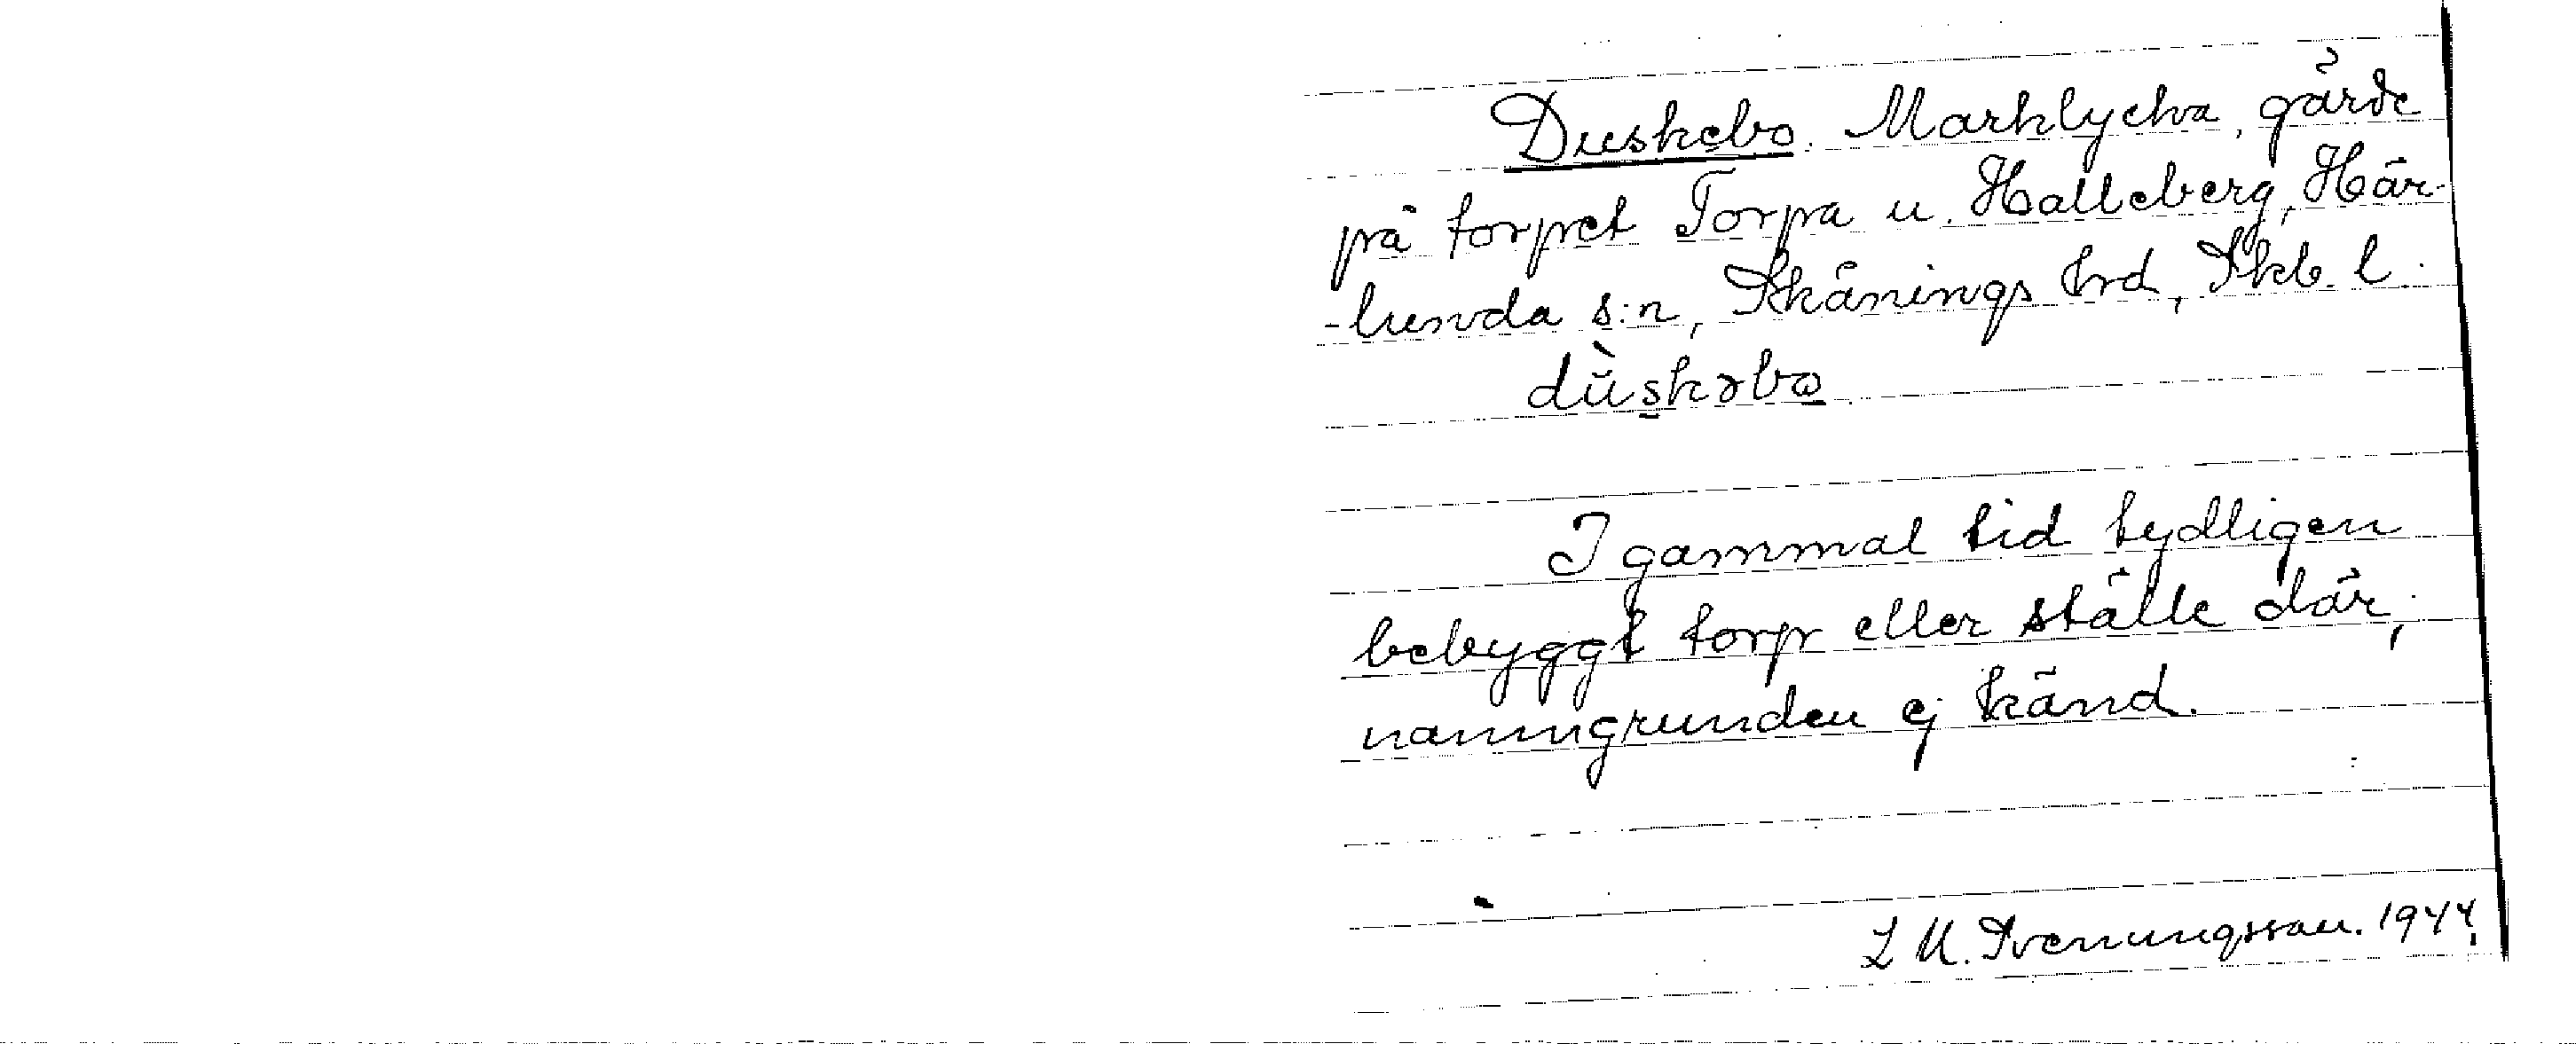 Duskebo. Marklycka, gärde
på torpet Torpa u. Halleberg, Här-
-lunda s:n, Skånings hrd, Skb. l.
dùskəbo
I gammal tid tydligen
bebyggt torp eller ställe där,
namngrunden ej känd.
L M. Svenungsson. 1944.